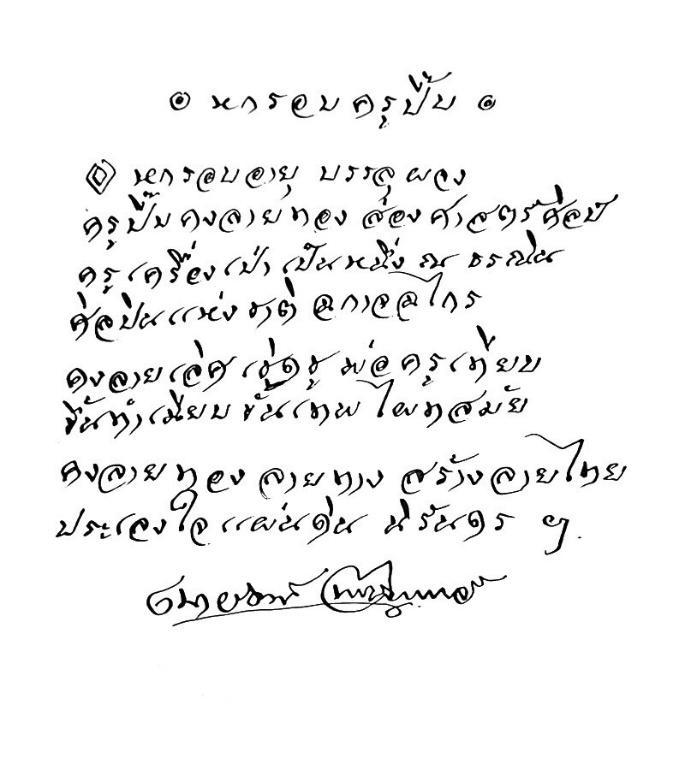 ๏ หกรอบครูปี๊บ ๏
หกรอบอายุ บรรลุผอง
ครูปี๊บ คงลายทอง ส่องศาสตร์ศิลป์
ครูเครื่องเป่า เป็นหนึ่ง ณ ธรณิน
ศิลปินแห่งชาติ ฉกาจฉไกร
คงลายเลิศ เชิดชู พ่อครูเทียบ
ขึ้นทำเนียบ ชั้นเทพ ไผทสมัย
คงลายทอง ลายทาง สร้างลายไทย
ประเลงใจ แผ่นดิน นิรันดร ฯ